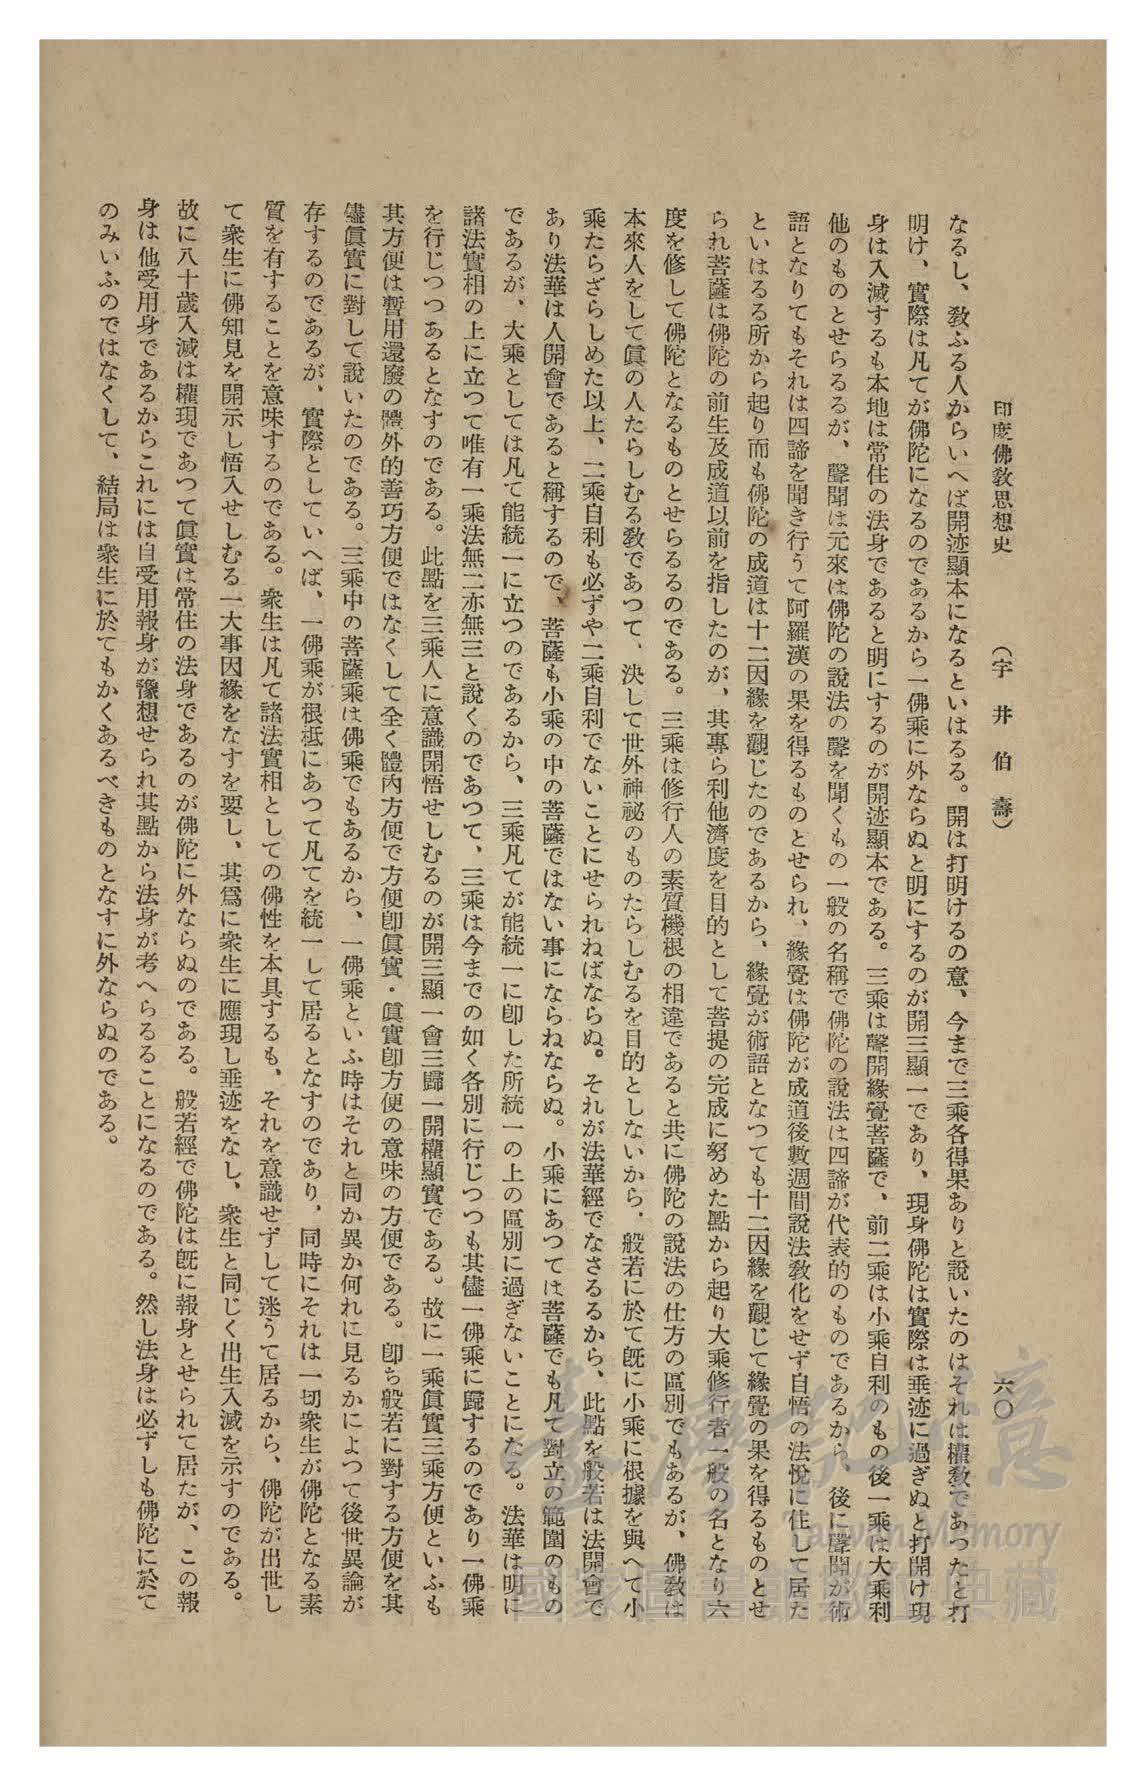 印度佛敎思想史　（宇井伯壽）　六〇
なるし、敎ふる人からいへば開迹顯本になるといはるる。開は打明けるの意、今まで三乘各得果ありと說いたのはそれは權敎であつたと打
明け、實際は凡てが佛陀になるのであるから一佛乘に外ならぬと明にするのが開三顯一であり、現身佛陀は實際は垂迹に過ぎぬと打開け現
身は入滅するも本地は常住の法身であると明にするのが開迹顯本である。三乘は聲聞緣覺菩薩で、前二乘は小乘自利のもの後一乘は大乘利
他のものとせらるるが、聲聞は元來は佛陀の說法の聲を聞くもの一般の名稱で佛陀の說法は四諦が代表的のものであるから、後に聲聞が術
語となりてもそれは四諦を聞き行うて阿羅漢の果を得るものとせられ、緣覺は佛陀が成道後數週間說法敎化をせず自悟の法悅に住して居た
といはるる所から起り而も佛陀の成道は十二因緣を觀じたのであるから、緣覺が術語となつても十二因緣を觀じて緣覺の果を得るものとせ
られ菩薩は佛陀の前生及成道以前を指したのが、其專ら利他濟度を目的として菩提の完成に努めた點から起り大乘修行者一般の名となり六
度を修して佛陀となるものとせらるるのである。三乘は修行人の素質機根の相違であると共に佛陀の說法の仕方の區別でもあるが、佛敎は
本來人をして眞の人たらしむる敎であつて、決して世外神祕のものたらしむるを目的としないから、般若に於て旣に小乘に根據を與へて小
乘たらざらしめた以上、二乘自利も必ずや二乘自利でないことにせられねばならぬ。それが法華經でなさるるから、此點を般若は法開會で
あり法華は人開會であると稱するので、菩薩も小乘の中の菩薩ではない事にならねならぬ。小乘にあつては菩薩でも凡て對立の範圍のもの
であるが、大乘としては凡て能統一に立つのであるから、三乘凡てが能統一に卽した所統一の上の區別に過ぎないことになる。法華は明に
諸法實相の上に立つて唯有一乘法無二亦無三と說くのであつて、三乘は今までの如く各別に行じつつも其儘一佛乘に歸するのであり一佛乘
を行じつつあるとなすのである。此點を三乘人に意識開悟せしむるのが開三顯一會三歸一開權顯實である。故に一乘眞實三乘方便といふも
其方便は暫用還廢の體外的善巧方便ではなくして全く體內方便で方便卽眞實・眞實卽方便の意味の方便である。卽ち般若に對する方便を其
儘眞實に對して說いたのである。三乘中の菩薩乘は佛乘でもあるから、一佛乘といふ時はそれと同か異か何れに見るかによつて後世異論が
存するのであるが、實際としていへば、一佛乘が根柢にあつて凡てを統一して居るとなすのであり、同時にそれは一切衆生が佛陀となる素
質を有することを意味するのである。衆生は凡て諸法實相としての佛性を本具するも、それを意識せずして迷うて居るから、佛陀が出世し
て衆生に佛知見を開示し悟入せしむる一大事因緣をなすを要し、其爲に衆生に應現し垂迹をなし、衆生と同じく出生入滅を示すのである。
故に八十歲入滅は權現であつて眞實は常住の法身であるのが佛陀に外ならぬのである。般若經で佛陀は旣に報身とせられて居たが、この報
身は他受用身であるからこれには自受用報身が豫想せられ其點から法身が考へらるることになるのである。然し法身は必ずしも佛陀に於て
のみいふのではなくして、結局は衆生に於てもかくあるべきものとなすに外ならぬのである。
臺灣記憶
Taiwan Memory
國家圖書館數位典藏